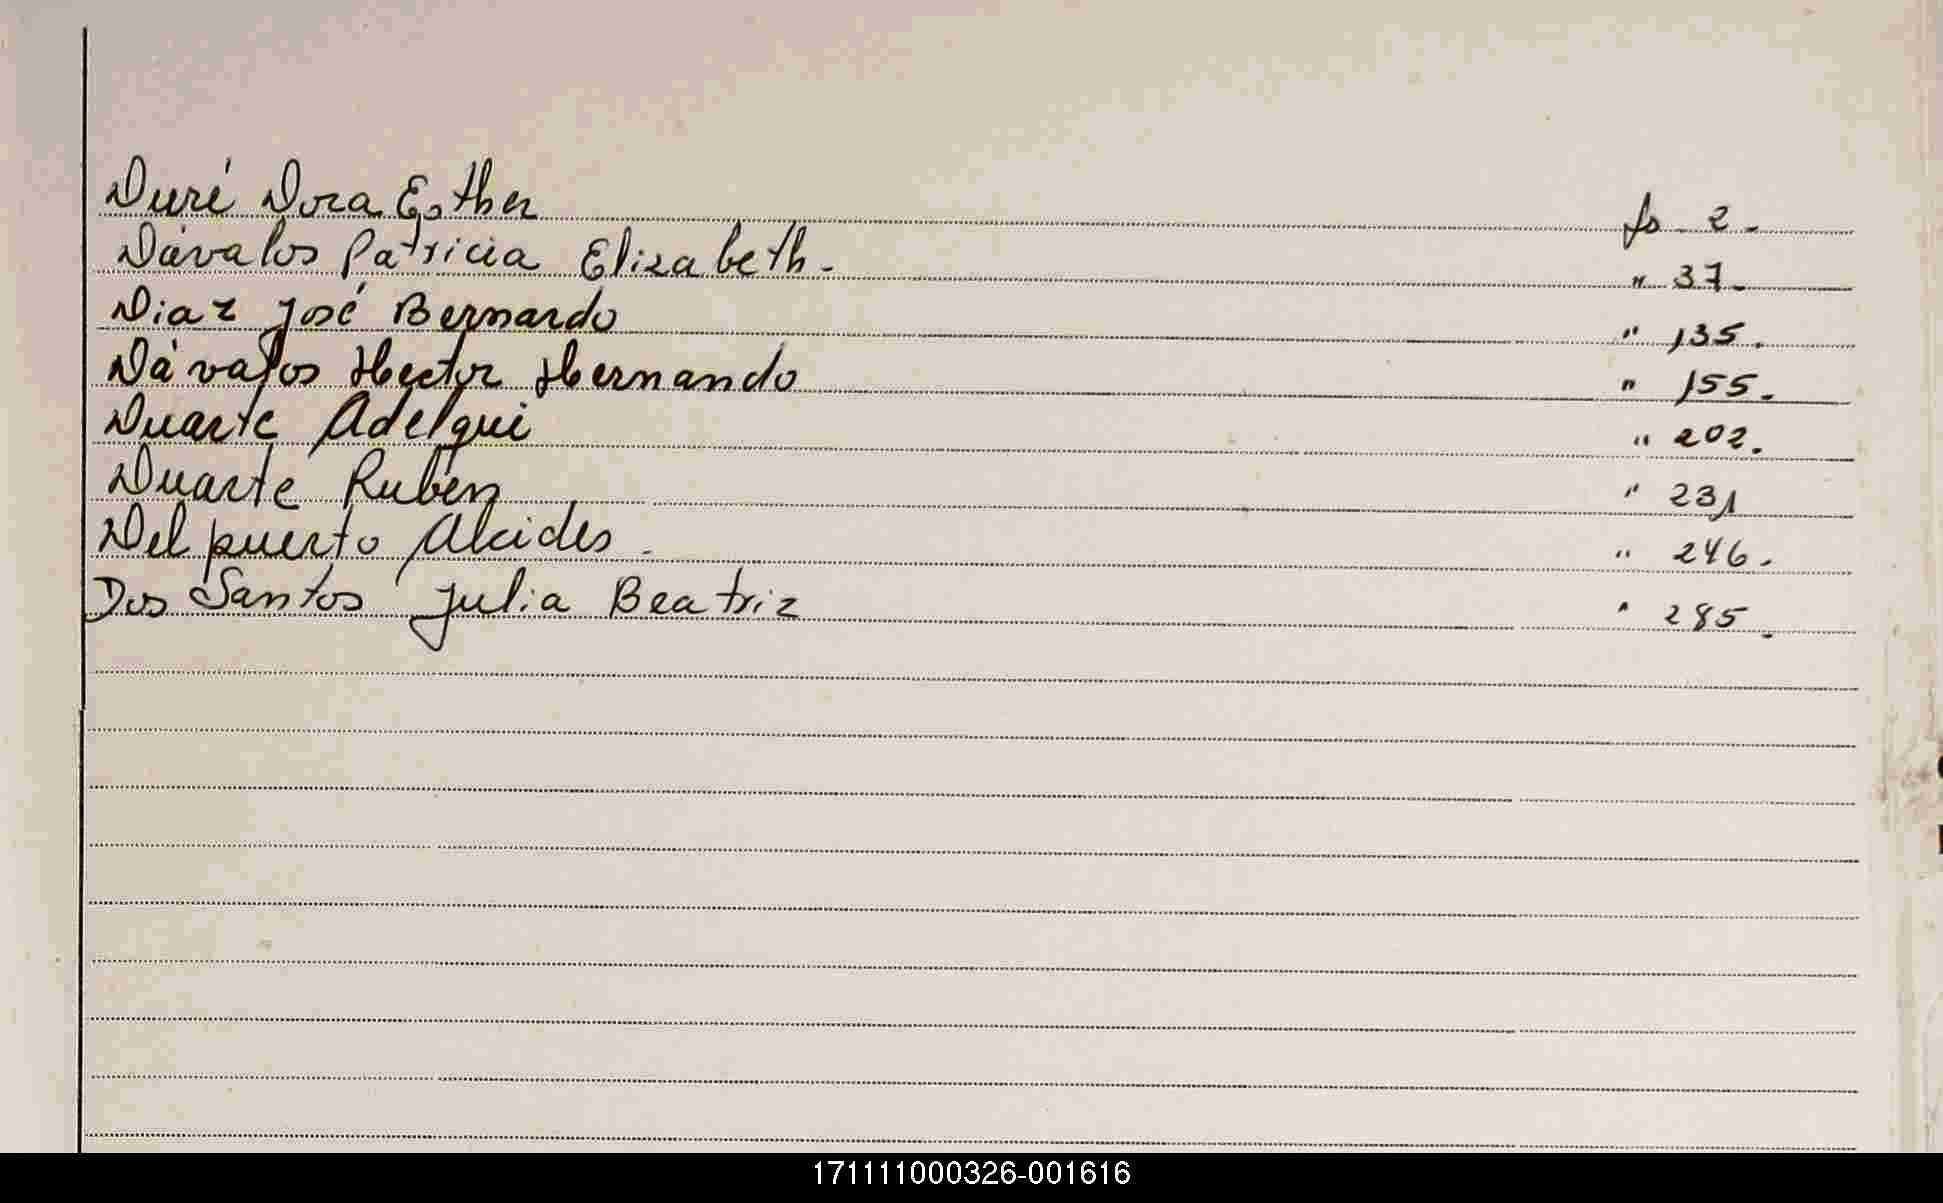 Duré Dora Esther fs 2.
Dávalos Patricia Elizabeth. " 37.
Diaz José Bernardo " 135.
Dávalos Hector Hernando " 155.
Duarte Adelqui " 202.
Duarte Rubén " 231
Del puerto Alcides. " 246.
Dos Santos Julia Beatriz " 285.
171111000326-001616